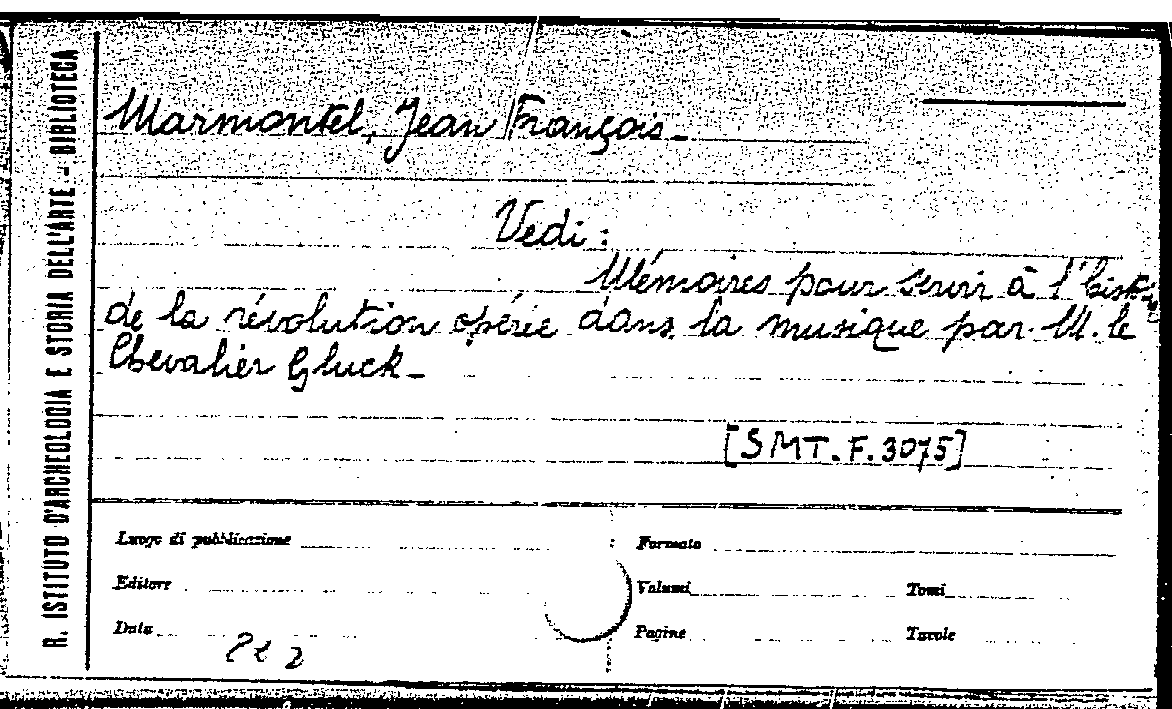 R. ISTITUTO D'ARCHEOLOGIA E STORIA DELL'ARTE - BIBLIOTECA
Marmontel, Jean François_
Vedi :
Mémoires pour servir à l'
de la révolution opérée dans la musique par M. le
Chevalier Gluck_
[SMT. F. 3075]
Luogo di pubblicazione
Formato
Editore
Volumi
Tomi
Data
Pagine
Tavole